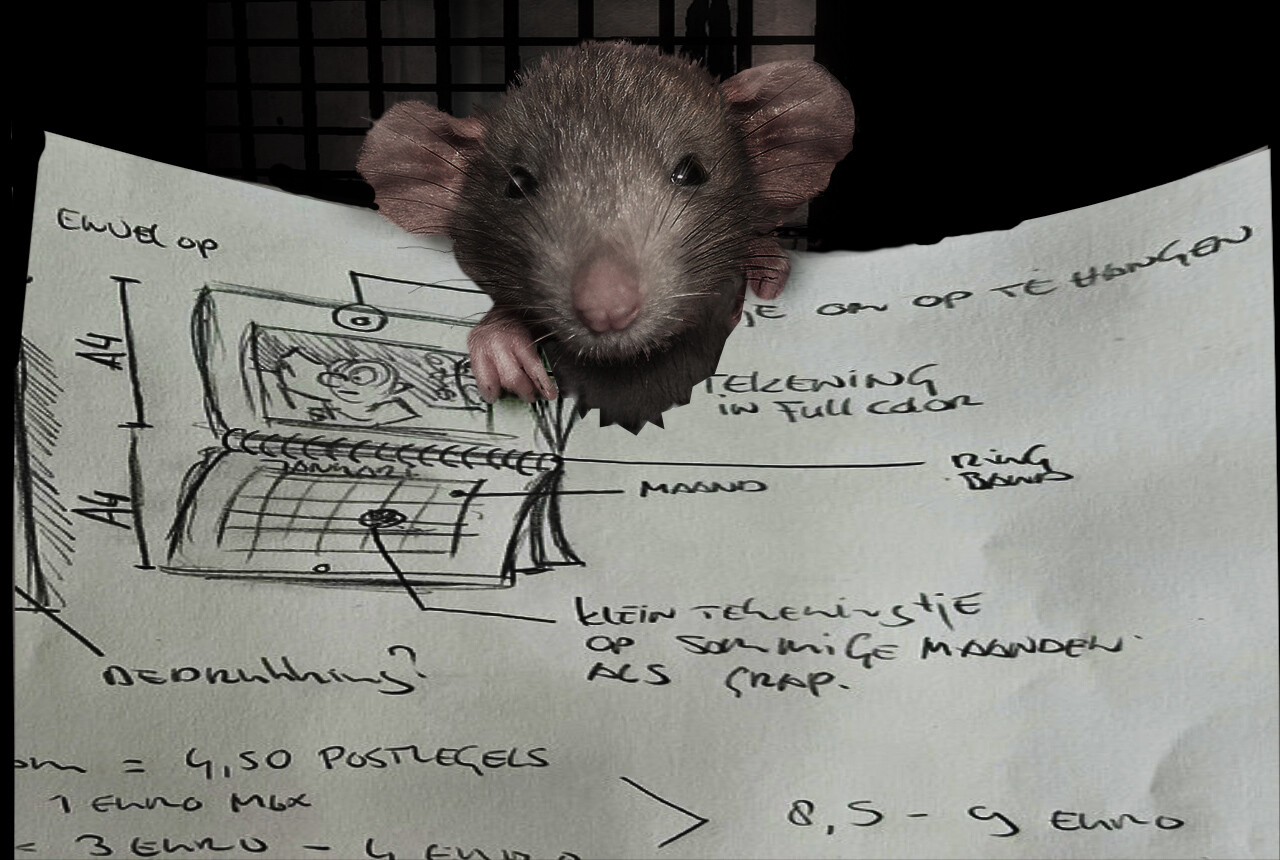 ENVELOP
JE OM OP TE HANGEN
A4
TEKENING
IN FULL COLOR
RING
BAND
JANUARI
MAAND
A4
KLEIN TEKENINGETJE
OP SOMMIGE MAANDEN
ALS GRAP.
BEDRUKKING?
= 4,50 POSTZEGELS
1 EURO MAX
8,5 - 9 EURO
< 3 EURO - 4 EURO